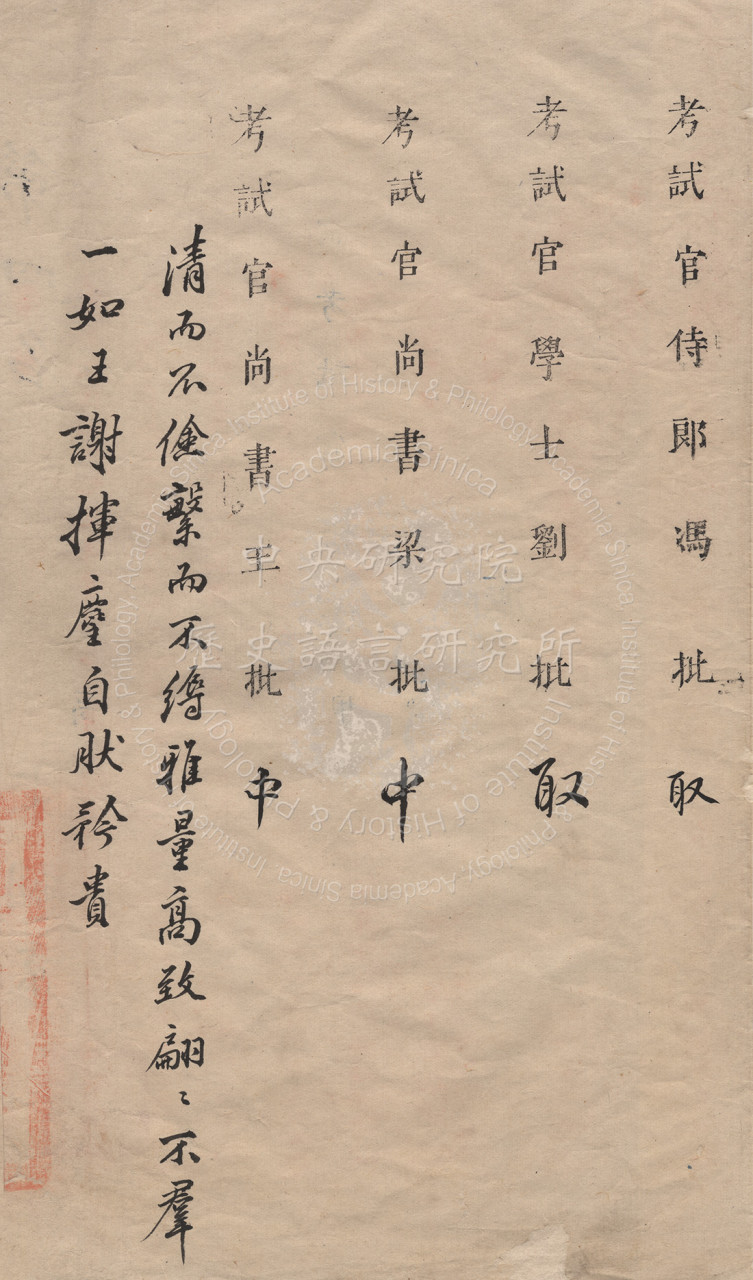 考試官侍郎馮批取
考試官學士劉批取
考試官尚書梁批中
考試官尚書王批中
清而不儉繁而不縟雅量高致翩〻不羣
一如王謝揮麈自肰矜貴
中央研究院
歷史語言研究所
Institute of History & Philology, Academia Sinica